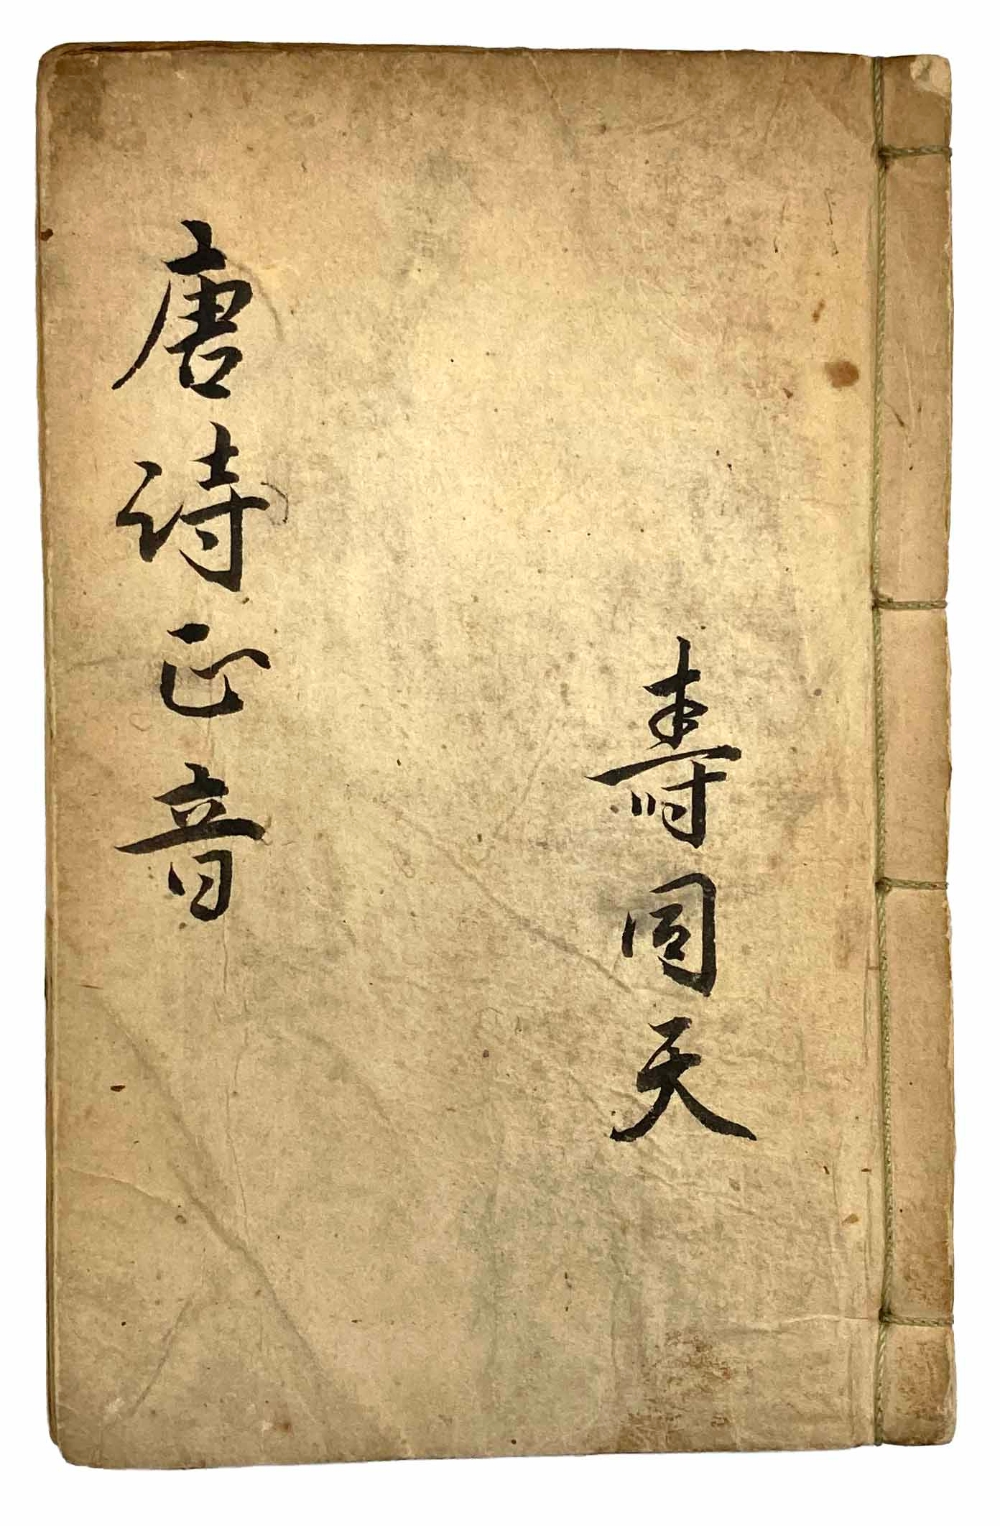 壽同天
唐詩正音